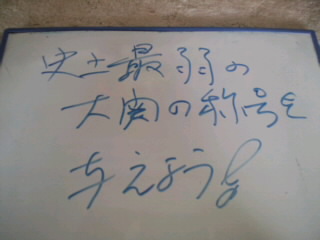 史上最弱の
大関の称号を
与えよう